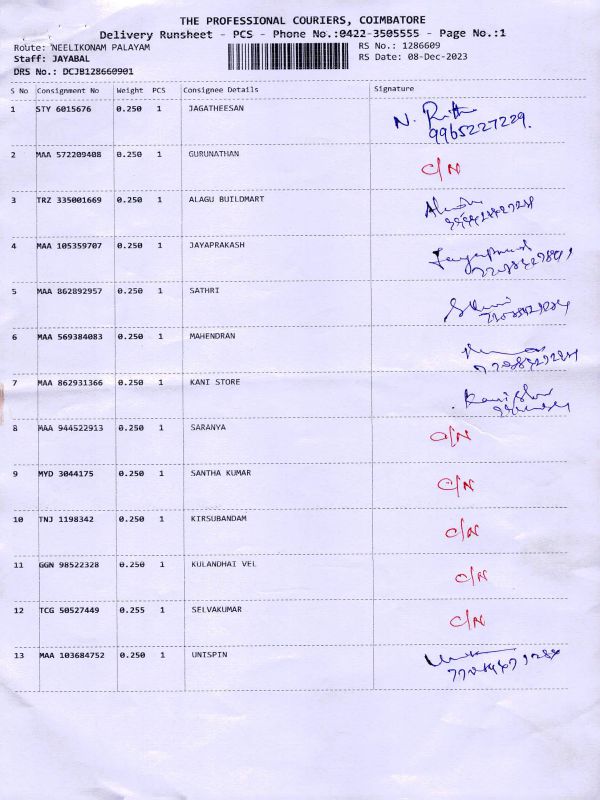 THE PROFESSIONAL COURIERS, COIMBATORE
Delivery Runsheet - PCS - Phone No.:0422-3505555 - Page No.:1
Route: NEELIKONAM PALAYAM RS No.: 1286609
Staff: JAYABAL RS Date: 08-Dec-2023
DRS No.: DCJB128660901
S No Consignment No Weight PCS Consignee Details Signature
1 STY 6015676 0.250 1 JAGATHEESAN N.
9965227229.
2 MAA 572209408 0.250 1 GURUNATHAN C/N
3 TRZ 335001669 0.250 1 ALAGU BUILDMART
4 MAA 105359707 0.250 1 JAYAPRAKASH
5 MAA 862892957 0.250 1 SATHRI
6 MAA 569384083 0.250 1 MAHENDRAN
7 MAA 862931366 0.250 1 KANI STORE
8 MAA 944522913 0.250 1 SARANYA C/N
9 MYD 3044175 0.250 1 SANTHA KUMAR C/N
10 TNJ 1198342 0.250 1 KIRSUBANDAM C/N
11 GGN 98522328 0.250 1 KULANDHAI VEL C/N
12 TCG 50527449 0.255 1 SELVAKUMAR C/N
13 MAA 103684752 0.250 1 UNISPIN